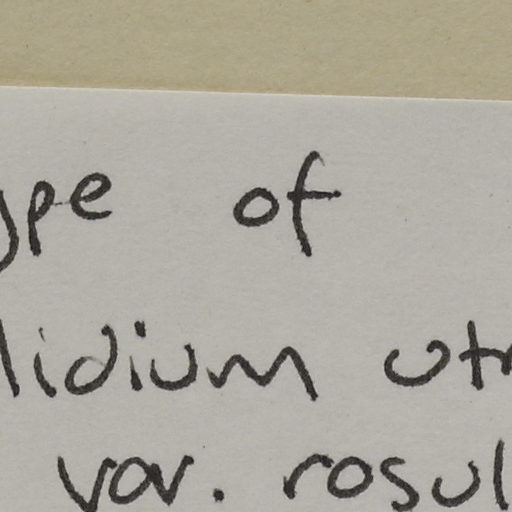 ype of
lidium utr
var. rosul